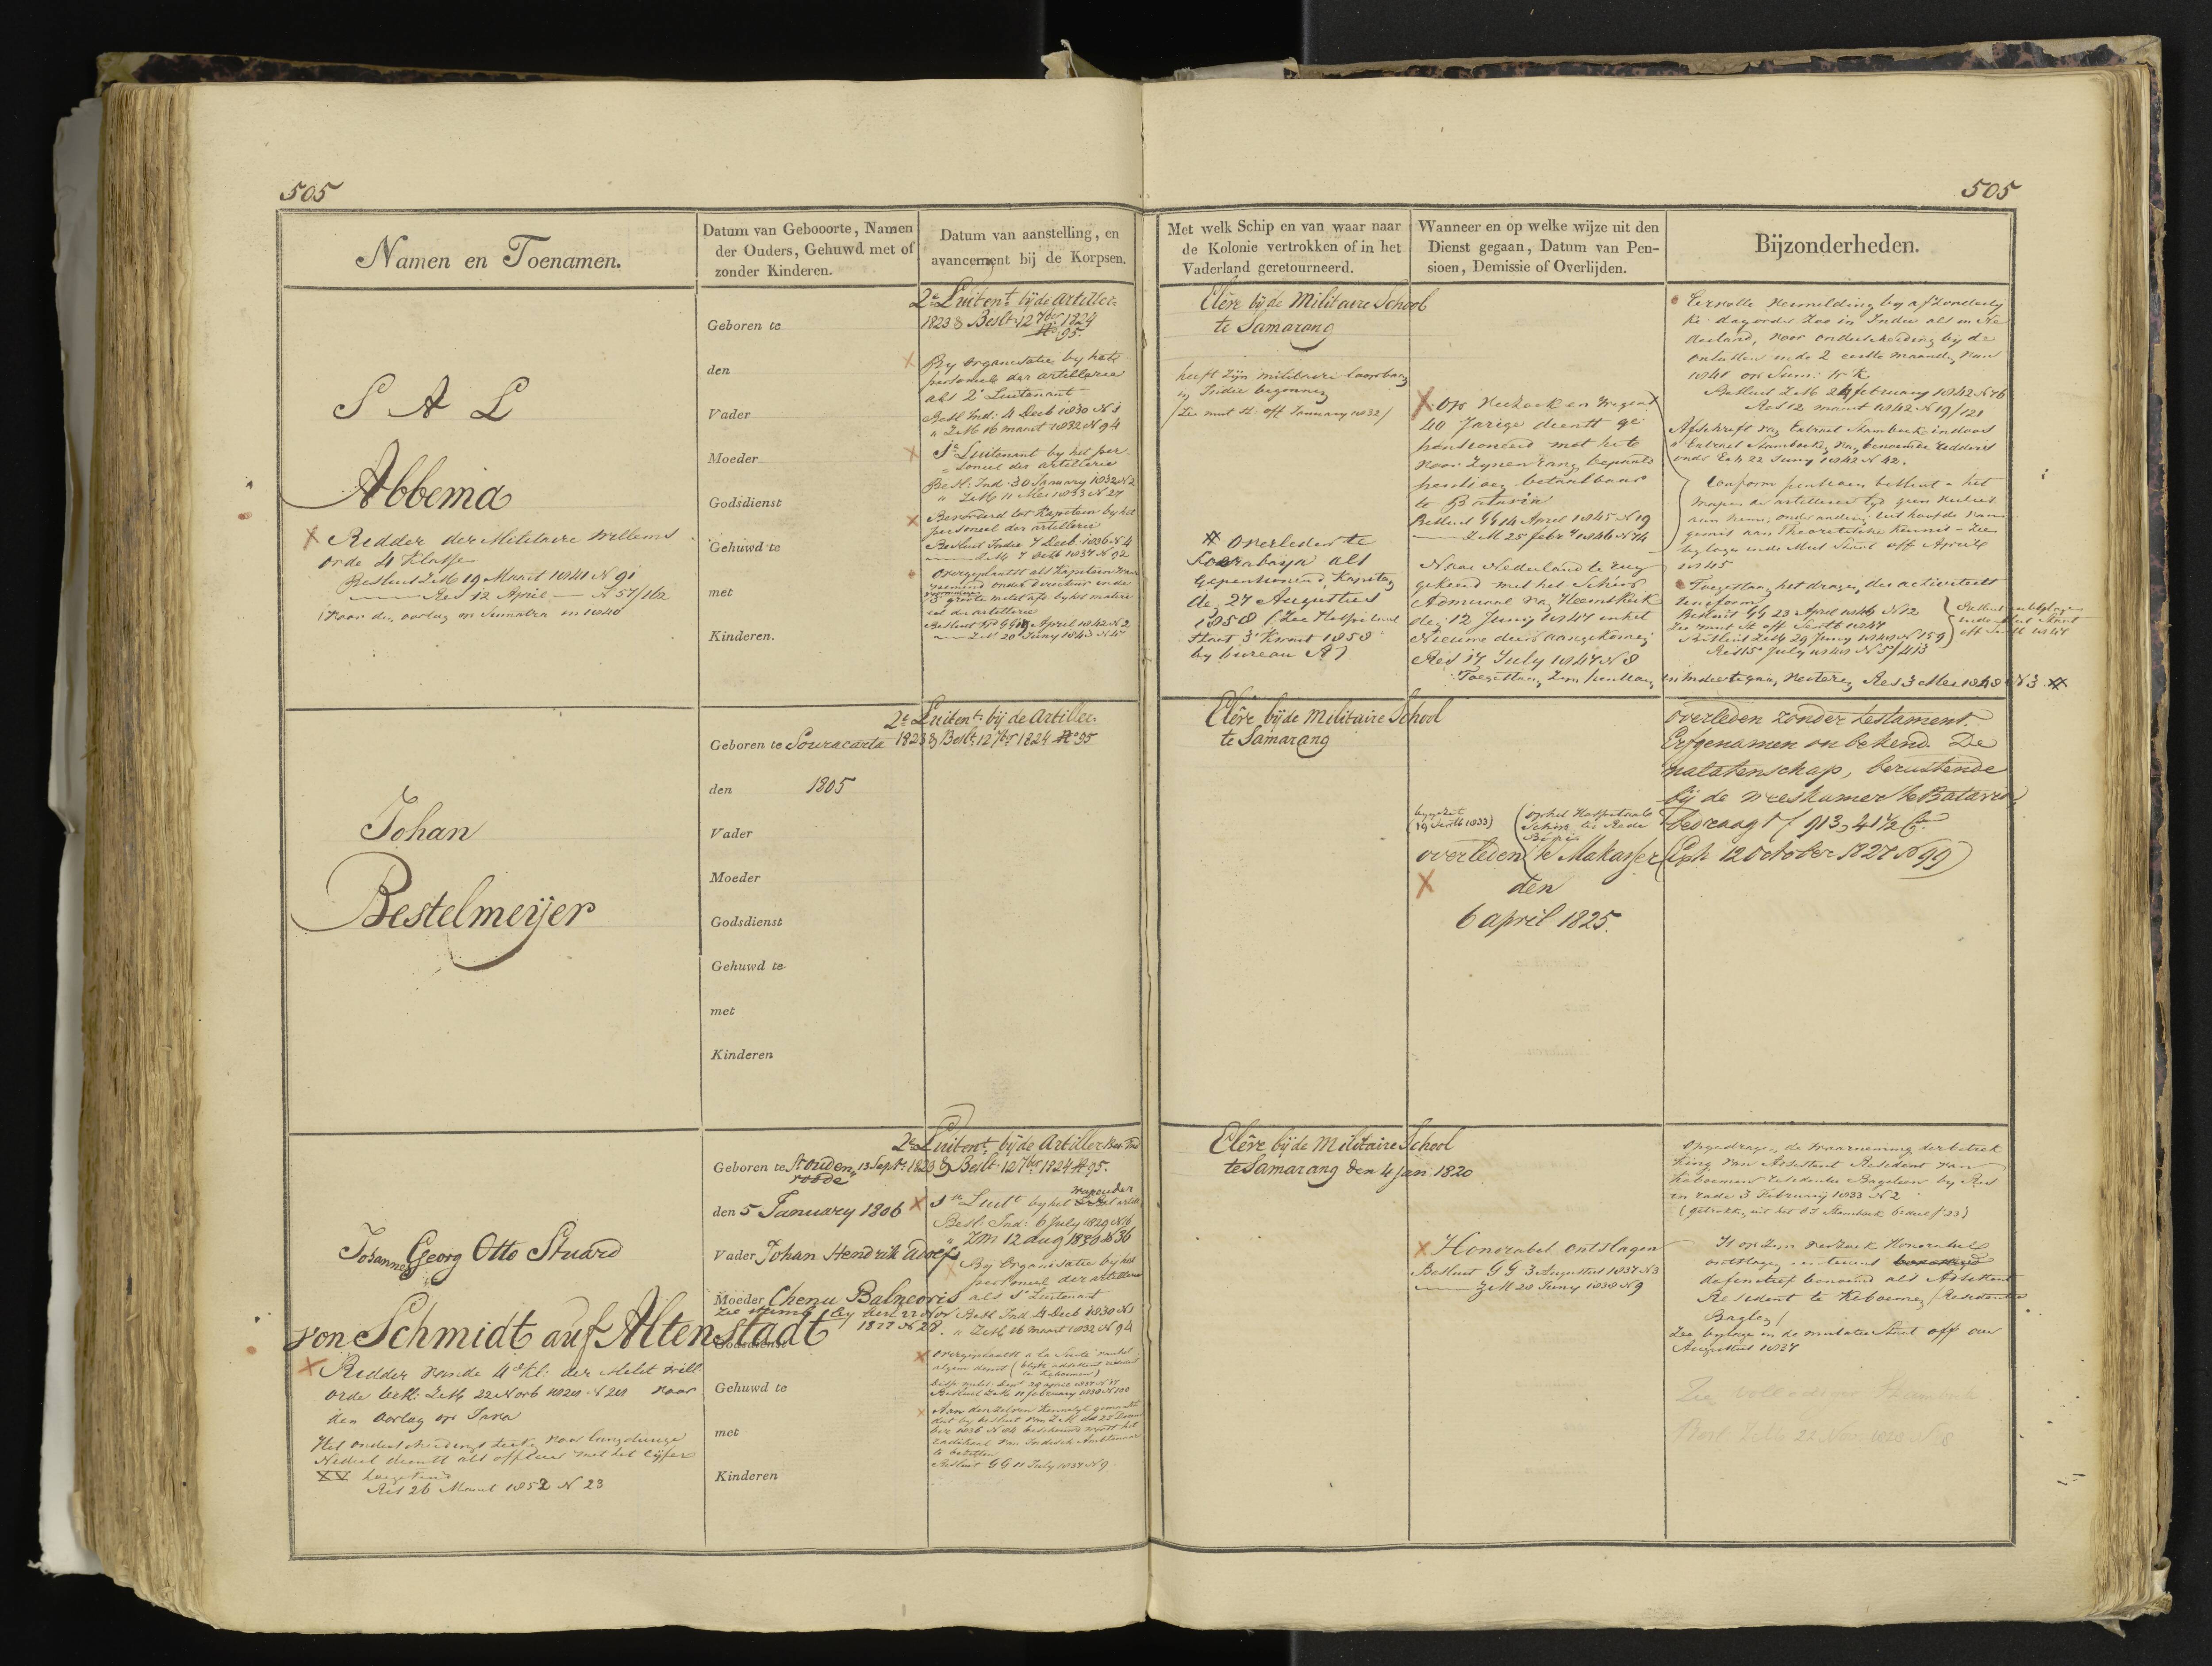 505
505
Namen en Toenamen.
Datum van Gebooorte, Namen
der Ouders, Gehuwd met of
zonder Kinderen.
Datum van aanstelling, en
avancement bij de Korpsen.
Met welk Schip en van waar naar
de Kolonie vertrokken of in het
Vaderland geretourneerd.
Wanneer en op welke wijze uit den
Dienst gegaan, Datum van Pen-
sioen, Demissie of Overlijden.
Bijzonderheden.
S A L
Abbema
X Ridder der Militaire Willems
orde 4 Klasse
Besluit ZM 19 Maart 1841 N 91
Res 12 April — N 57/162
voor den oorlog op Sumatra in 1840
Geboren te
den
Vader
Moeder
Godsdienst
Gehuwd te
met
Kinderen.
2e Luitent. bij de Artiller.
1823 & Beslt. 12 7ber 1824
No 95.
X By organisatie by het
personeel der artillerie
als 2e Luitenant
Besl Ind: 4 Decb 1830 N 1
" ZM 16 maart 1832 N 94
X 1e Luitenant by het per
soneel der artillerie
Besl: Ind: 30 January 1832 N 2
" ZM 11 Mei 1833 N 27
X Bevorderd tot Kapitein by het
personeel der artillerie
Besluit Indie 7 Decb 1836 N 4
ZM 7 Octb 1837 N 92
Overgeplaatst als Kapitein
onder Directeur in de
3e groote milit afd by het materi
eel der artillerie
April 1842 N 2
ZM 20 Juny 1843 N 47
Elève bij de Militaire School
te Samarang
heeft zijn militaire loopbaan
in Indie begonnen
(Zie mut St: off January 1832)
# Overleden te
Soerabaya als
gepensioneerd Kapitein
den 27 Augustus
1858 (Zie Hospitaal
Staat 3e Kwart 1858
by bureau A)
X Op verzoek en wegens
40 Jarige dienst ge
pensioneerd met het
voor zynen rang bepaald
pensioen betaalbaar
te Batavia
Besluit GG 14 April 1845 N 19
ZM 25 febry 1846 N 74
Naar Nederland te rug
gekeerd met het Schip
Admiraal van Heemskerk
den 12 Juny 1847 in het
Nieuwe diep aangekomen
Res 17 July 1847 N 8
Toegestaan zyn pensioen in Indie te gaan verteren Res 3 Mei 1848 N 3 #
Eervolle vermelding by afzonderly
ke dagorder zoo in Indie als in Ne
derland, voor onderscheiding by de
onlusten in de 2 eerste maanden van
1841 op Sum: W K
Besluit ZM 24 february 1842 N 76
Res 12 maart 1842 N 19/121
Afschrift van Extract Stamboek
Extract Stamboeken van benoemde ridders
onder Exh 22 Juny 1842 N 42.
Conform pensioen besluit - het
wapen der artillerie
gemis aan Theoretische Kennis - Zie
bylage in de Mut Staat off April
1845
Toegestaan het dragen der activiteits
uniform
Besluit GG 23 April 1846 N 12
Zie mut St off Septb 1847
Besluit ZM 29 Juny 1848 N 159
Res 15 July 1848 N 5/413
Johan
Bestelmeijer
Geboren te Souracarta
den 1805
Vader
Moeder
Godsdienst
Gehuwd te
met
Kinderen
2e Luitent. bij de Artiller.
1823 & Beslt. 12 7br 1824 No 95
Elève bij de Militaire School
te Samarang
(19 Septb 1833)
(op het Hospitaal
Schip ter Rede
overleden te Makasser
X den
6 april 1825.
overleden zonder testament.
Erfgenamen onbekend. De
nalatenschap, berustende
bij de weeskamer te Batavia,
bedraagt f 913,41½ Ct.
(Exh 12 October 1827 N 99)
Johannes Georg Otto Stuard
von Schmidt auf Altenstadt
X Ridder van de 4e Kl: der Milit Will
orde besl: ZM 22 Novb 1828 N 28 voor
den oorlog op Java
Het onderscheidings teeken voor langdurige
Nederl dienst als officier met het cijfer
XX toegekend
Res 26 Maart 1852 N 23
Geboren te
den 5 January 1806
Vader Johan Hendrik Adolf
Moeder Chenu Balneoris
1822 N 28.
Godsdienst
Gehuwd te
met
Kinderen
2e Luitent. bij de Artiller
13 Sept. 1823 & Beslt. 12 7ber 1824 No 95.
X 1e Luit by het
Besl: Ind: 6 July 1829 N 16
" ZM 12 aug 1830 N 86
X By Organisatie by het
personeel der artillerie
als 1e Luitenant
Besl Ind 4 Decb 1830 N 1
" ZM 16 maart 1832 N 94
X Overgeplaatst a la Suite
Besluit ZM 11 february 1838 N 100
X Aan denzelven kennelyk gemaakt
dat by besluit van ZM
ber 1836 N 84 beschouwd wordt het
radikaal van Indisch Ambtenaar
te bezitten
Besluit GG 11 July 1837 N 9
Elève bij de Militaire School
te Samarang den 4 Jan. 1820
X Honorabel ontslagen
Besluit GG 3 Augustus 1837 N 3
ZM 28 Juny 1838 N 9
Opgedragen de waarneming der betrek
king van Assistent Resident van
Keboemen residentie Bageleen by Res
in rade 3 February 1833 N 2
(getrokken uit het OI Stamboek 6e deel f 23)
Is op zyn verzoek Honorabel
ontslagen en tevens
definitief benoemd als Assistent
Resident te Keboemen (Residentie
Baglen)
Zie bylage in de mutatie Staat off over
Augustus 1837